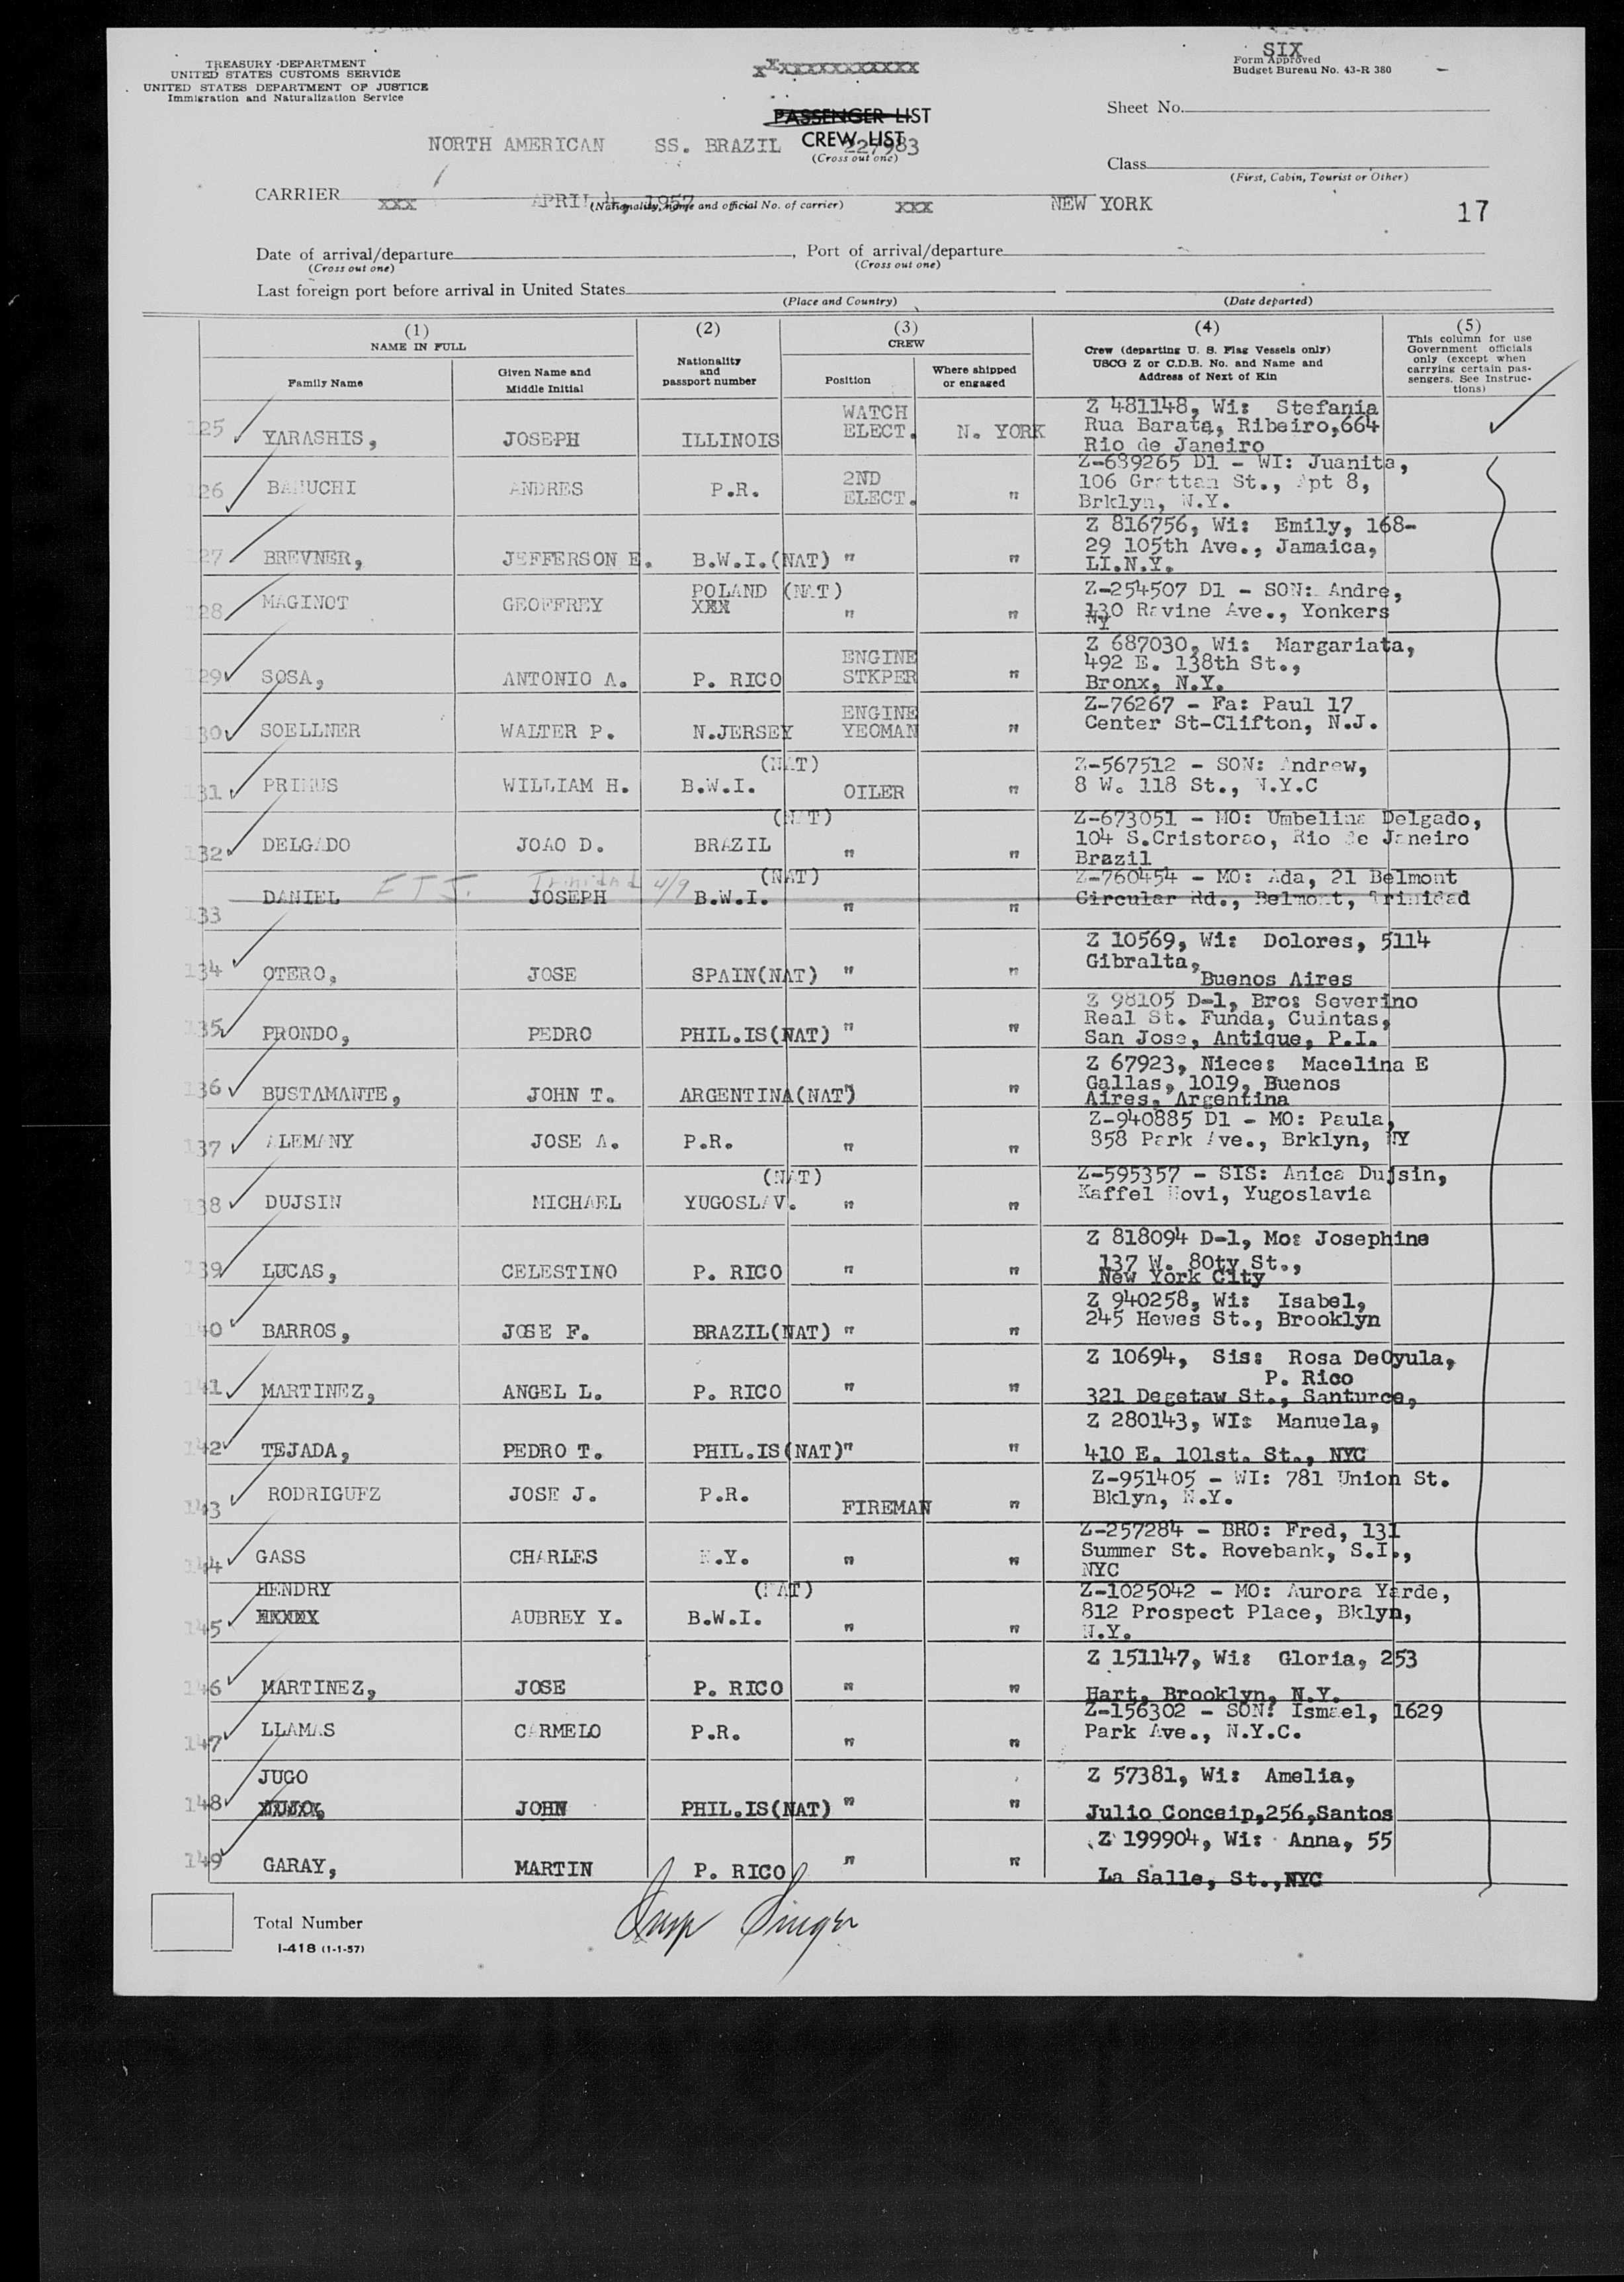 TREASURY DEPARTMENT
UNITED STATES CUSTOMS SERVICE
UNITED STATES DEPARTMENT OF JUSTICE
Immigration and Naturalization Service
xXxxxxxxxxxxx
SIX
Form Approved
Budget Bureau No. 43-R 380
PASSENGER LIST
CREW LIST
(Cross out one)
Sheet No.
NORTH AMERICAN SS. BRAZIL 227983
Class
(First, Cabin, Tourist or Other)
CARRIER
(Nationality, name and official No. of carrier)
XXX APRIL 4, 1957 XXX NEW YORK 17
Date of arrival/departure , Port of arrival/departure
(Cross out one) (Cross out one)
Last foreign port before arrival in United States
(Place and Country) (Date departed)
(1) NAME IN FULL
Family Name
Given Name and Middle Initial
(2) Nationality and passport number
(3) CREW
Position
Where shipped or engaged
(4) Crew (departing U. S. Flag Vessels only) USCG Z or C.D.B. No. and Name and Address of Next of Kin
(5) This column for use Government officials only (except when carrying certain passengers. See Instructions)
125 YARASHIS, JOSEPH ILLINOIS WATCH ELECT. N. YORK Z 481148, Wi: Stefania
Rua Barata, Ribeiro,664
Rio de Janeiro
126 BAHUCHI ANDRES P.R. 2ND ELECT. " Z-689265 D1 - WI: Juanita,
106 Grattan St., Apt 8,
Brklyn, N.Y.
127 BREVNER, JEFFERSON E. B.W.I.(NAT) " " Z 816756, Wi: Emily, 168-
29 105th Ave., Jamaica,
LI.N.Y.
128 MAGINOT GEOFFREY POLAND (NAT) XXX " " Z-254507 D1 - SON: Andre,
130 Ravine Ave., Yonkers
NY
129 SOSA, ANTONIO A. P. RICO ENGINE STKPER " Z 687030, Wi: Margariata,
492 E. 138th St.,
Bronx, N.Y.
130 SOELLNER WALTER P. N.JERSEY ENGINE YEOMAN " Z-76267 - Fa: Paul 17
Center St-Clifton, N.J.
131 PRIMUS WILLIAM H. B.W.I. (NAT) OILER " Z-567512 - SON: Andrew,
8 W. 118 St., N.Y.C
132 DELGADO JOAO D. BRAZIL (NAT) " " Z-673051 - MO: Umbelina Delgado,
104 S.Cristorao, Rio de Janeiro
Brazil
133 DANIEL F T J. Trinidad 4/9 JOSEPH B.W.I. (NAT) " " Z-760454 - MO: Ada, 21 Belmont
Circular Rd., Belmont, Trinidad
134 OTERO, JOSE SPAIN(NAT) " " Z 10569, Wi: Dolores, 5114
Gibralta,
Buenos Aires
135 PRONDO, PEDRO PHIL.IS(NAT) " " Z 98105 D-1, Bro: Severino
Real St. Funda, Cuintas,
San Jose, Antique, P.I.
136 BUSTAMANTE, JOHN T. ARGENTINA(NAT) " " Z 67923, Niece: Macelina E
Gallas, 1019, Buenos
Aires, Argentina
137 ALEMANY JOSE A. P.R. " " Z-940885 D1 - MO: Paula,
858 Park Ave., Brklyn, NY
138 DUJSIN MICHAEL YUGOSLAV. (NAT) " " Z-595357 - SIS: Anica Dujsin,
Kaffel Novi, Yugoslavia
139 LUCAS, CELESTINO P. RICO " " Z 818094 D-1, Mo: Josephine
137 W. 80ty St.,
New York City
140 BARROS, JOSE F. BRAZIL(NAT) " " Z 940258, Wi: Isabel,
245 Hewes St., Brooklyn
141 MARTINEZ, ANGEL L. P. RICO " " Z 10694, Sis: Rosa DeOyula,
P. Rico
321 Degetaw St., Santurce,
142 TEJADA, PEDRO T. PHIL.IS(NAT) " " Z 280143, WI: Manuela,
410 E. 101st. St., NYC
143 RODRIGUEZ JOSE J. P.R. FIREMAN " Z-951405 - WI: 781 Union St.
Bklyn, N.Y.
144 GASS CHARLES N.Y. " " Z-257284 - BRO: Fred, 131
Summer St. Rovebank, S.I.,
NYC
145 HENDRY AUBREY Y. B.W.I. (NAT) " " Z-1025042 - MO: Aurora Yarde,
812 Prospect Place, Bklyn,
N.Y.
146 MARTINEZ, JOSE P. RICO " " Z 151147, Wi: Gloria, 253
Hart, Brooklyn, N.Y.
147 LLAMAS CARMELO P.R. " " Z-156302 - SON: Ismael, 1629
Park Ave., N.Y.C.
148 JUGO JOHN PHIL.IS(NAT) " " Z 57381, Wi: Amelia,
Julio Conceip,256,Santos
149 GARAY, MARTIN P. RICO " " Z 199904, Wi: Anna, 55
La Salle, St.,NYC
Total Number
I-418 (1-1-57)
Insp Singer